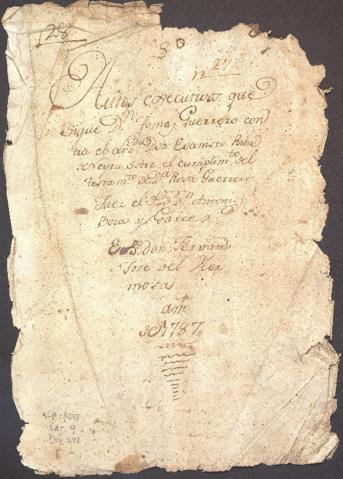 128.
8º
nº 27
Autos executivos que
Sigue Dn. Tomas Guerrero con
tra el Don Evaristo
Neira sobre el cumplimto. del
testamto. de Da. Rosa Guerrero
Juez el Sor. Dn. Antonio
Boza y Garces
Esno. don Fernando
Jose del Her
mosa
año
de 1787
Cap. 9
Doc 248